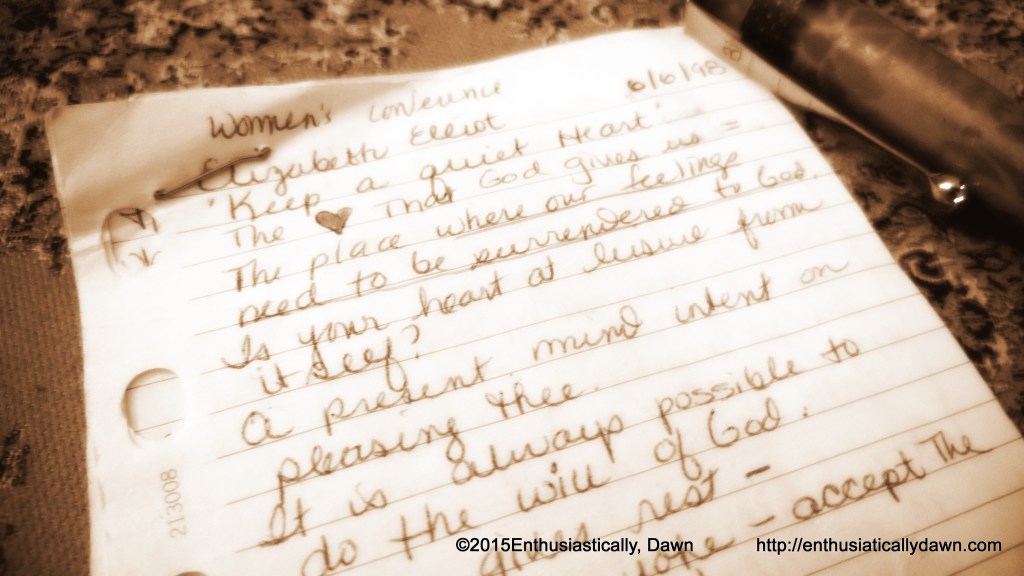 Women's Conference 6/6/98
Elizabeth Elliot
"Keep a quiet Heart"
The ♥ that God gives us =
The place where our feelings
need to be surrendered to God.
Is your heart at leisure from
itself?
a present mind intent on
pleasing thee.
It is always possible to
do the will of God.
gives rest -
- accept the
213008
©2015Enthusiastically, Dawn
http://enthusiaticallydawn.com